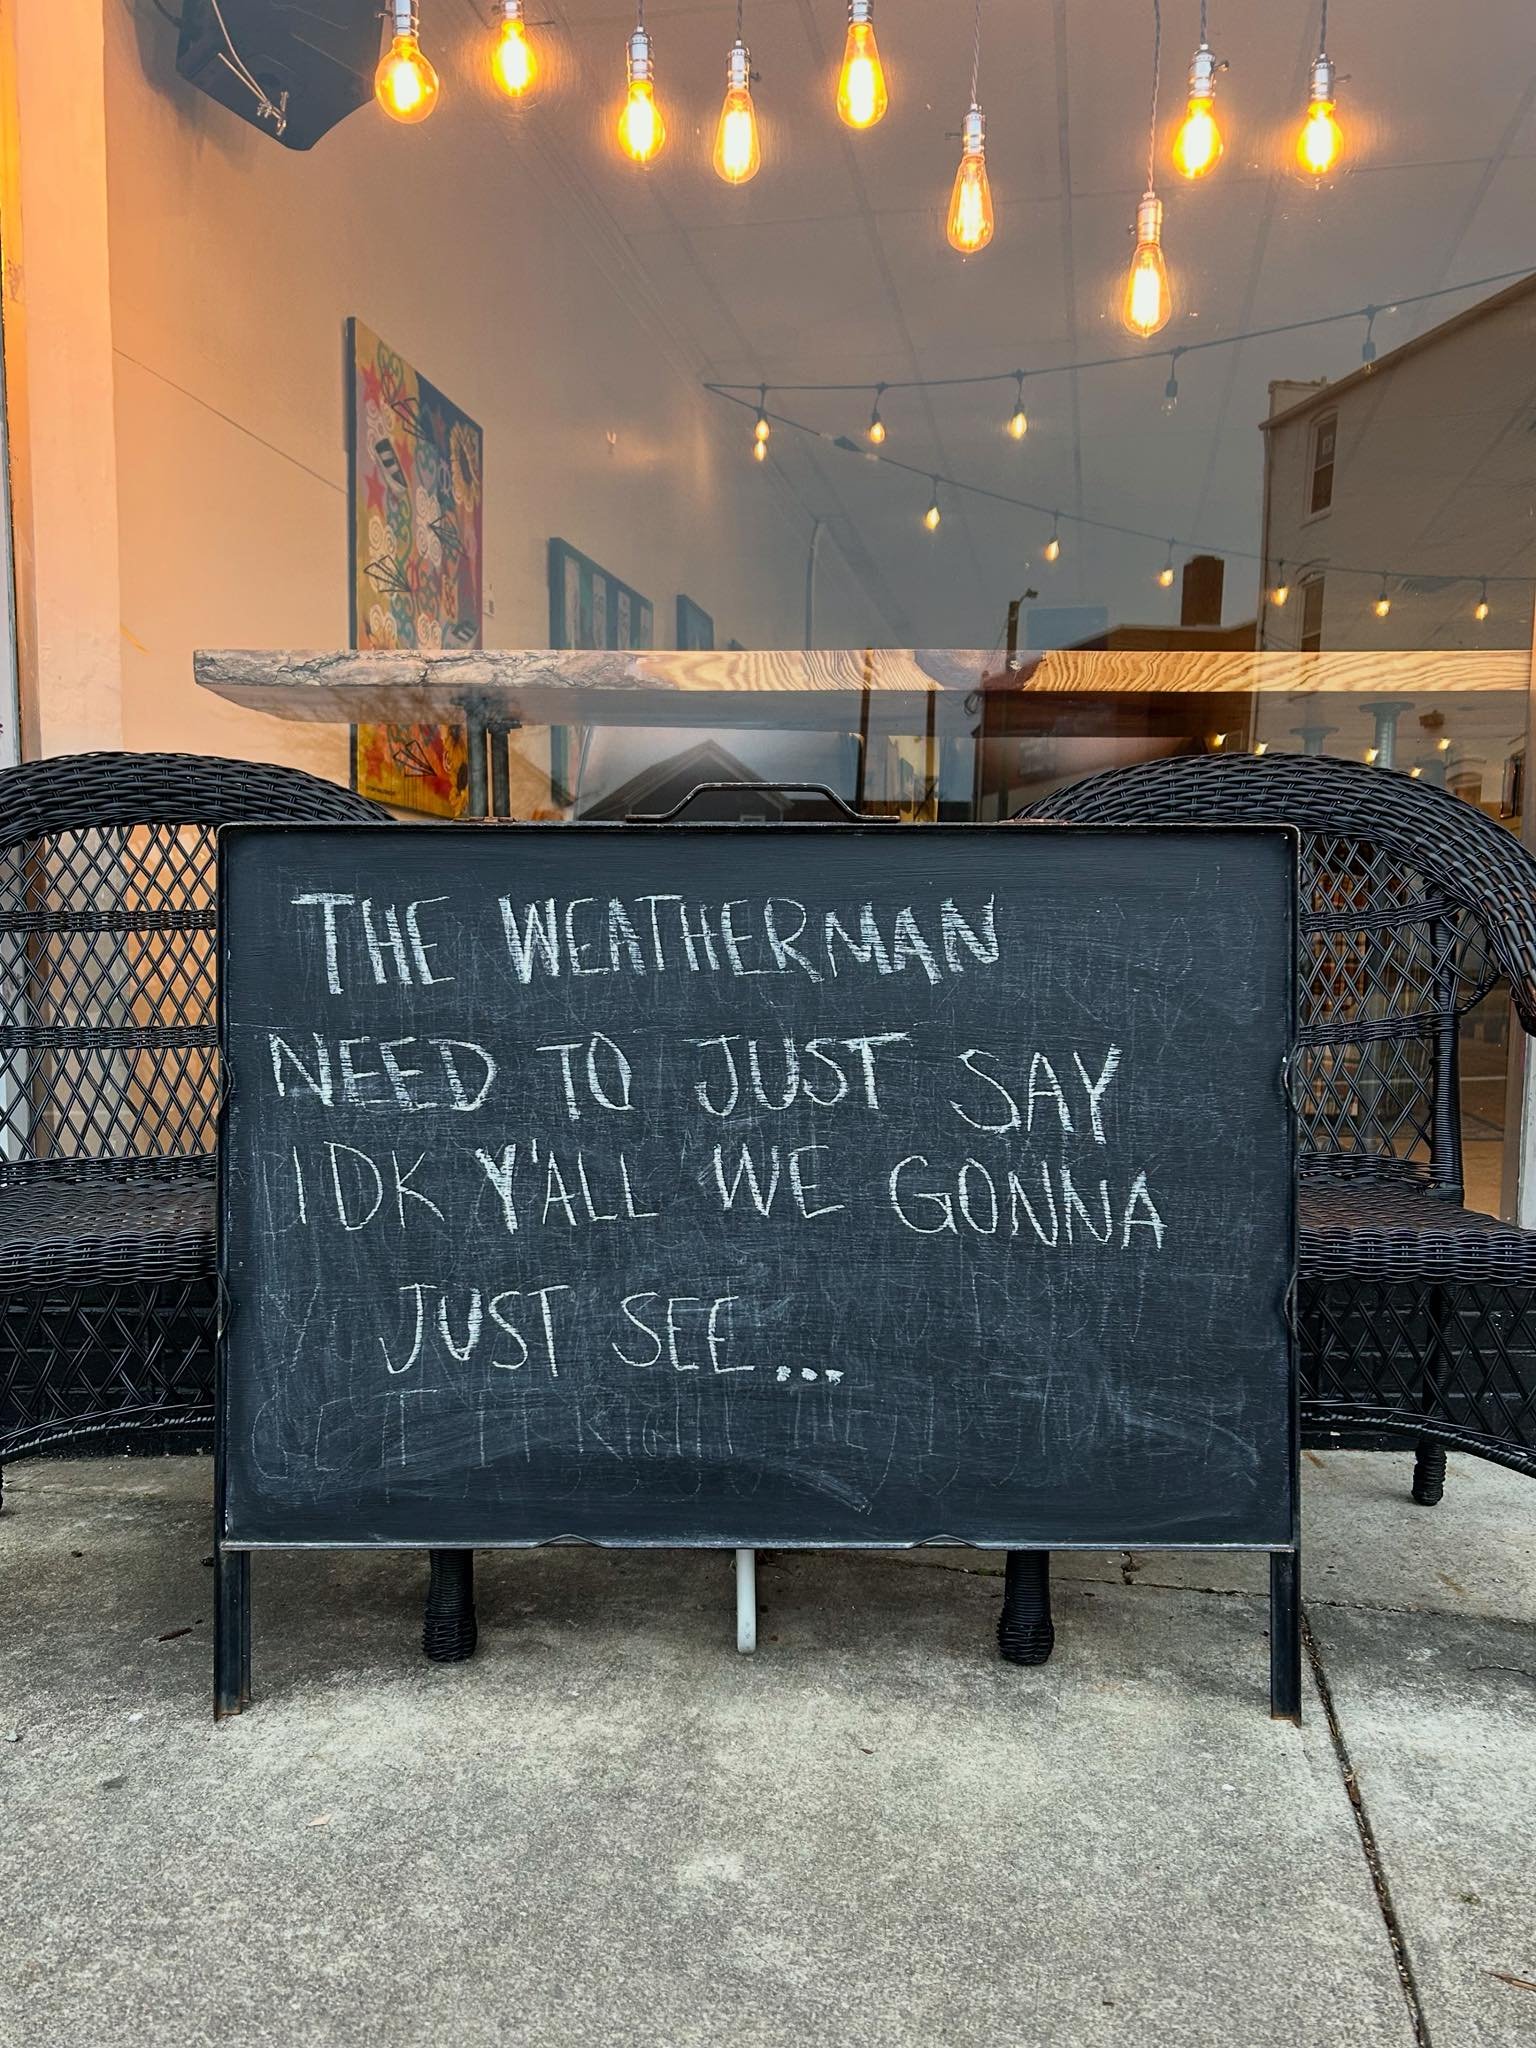 THE WEATHERMAN
NEED TO JUST SAY
IDK Y'ALL WE GONNA
JUST SEE...